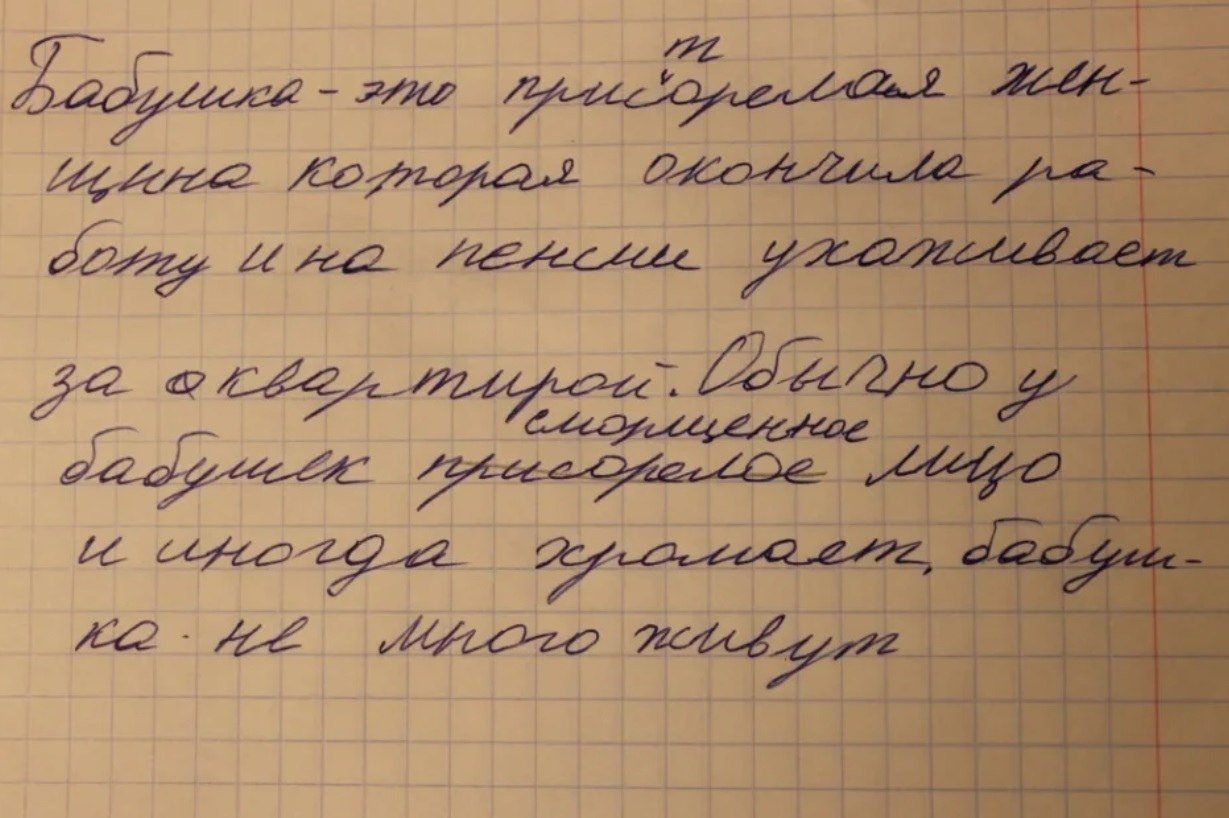 Бабушка - это присторелая жен-
щина которая окончила ра-
боту и на пенсии ухаживает
за квартирой. Обычно у
бабушек присорелое сморщенное лицо
и иногда хромает, бабуш-
ка не много живут